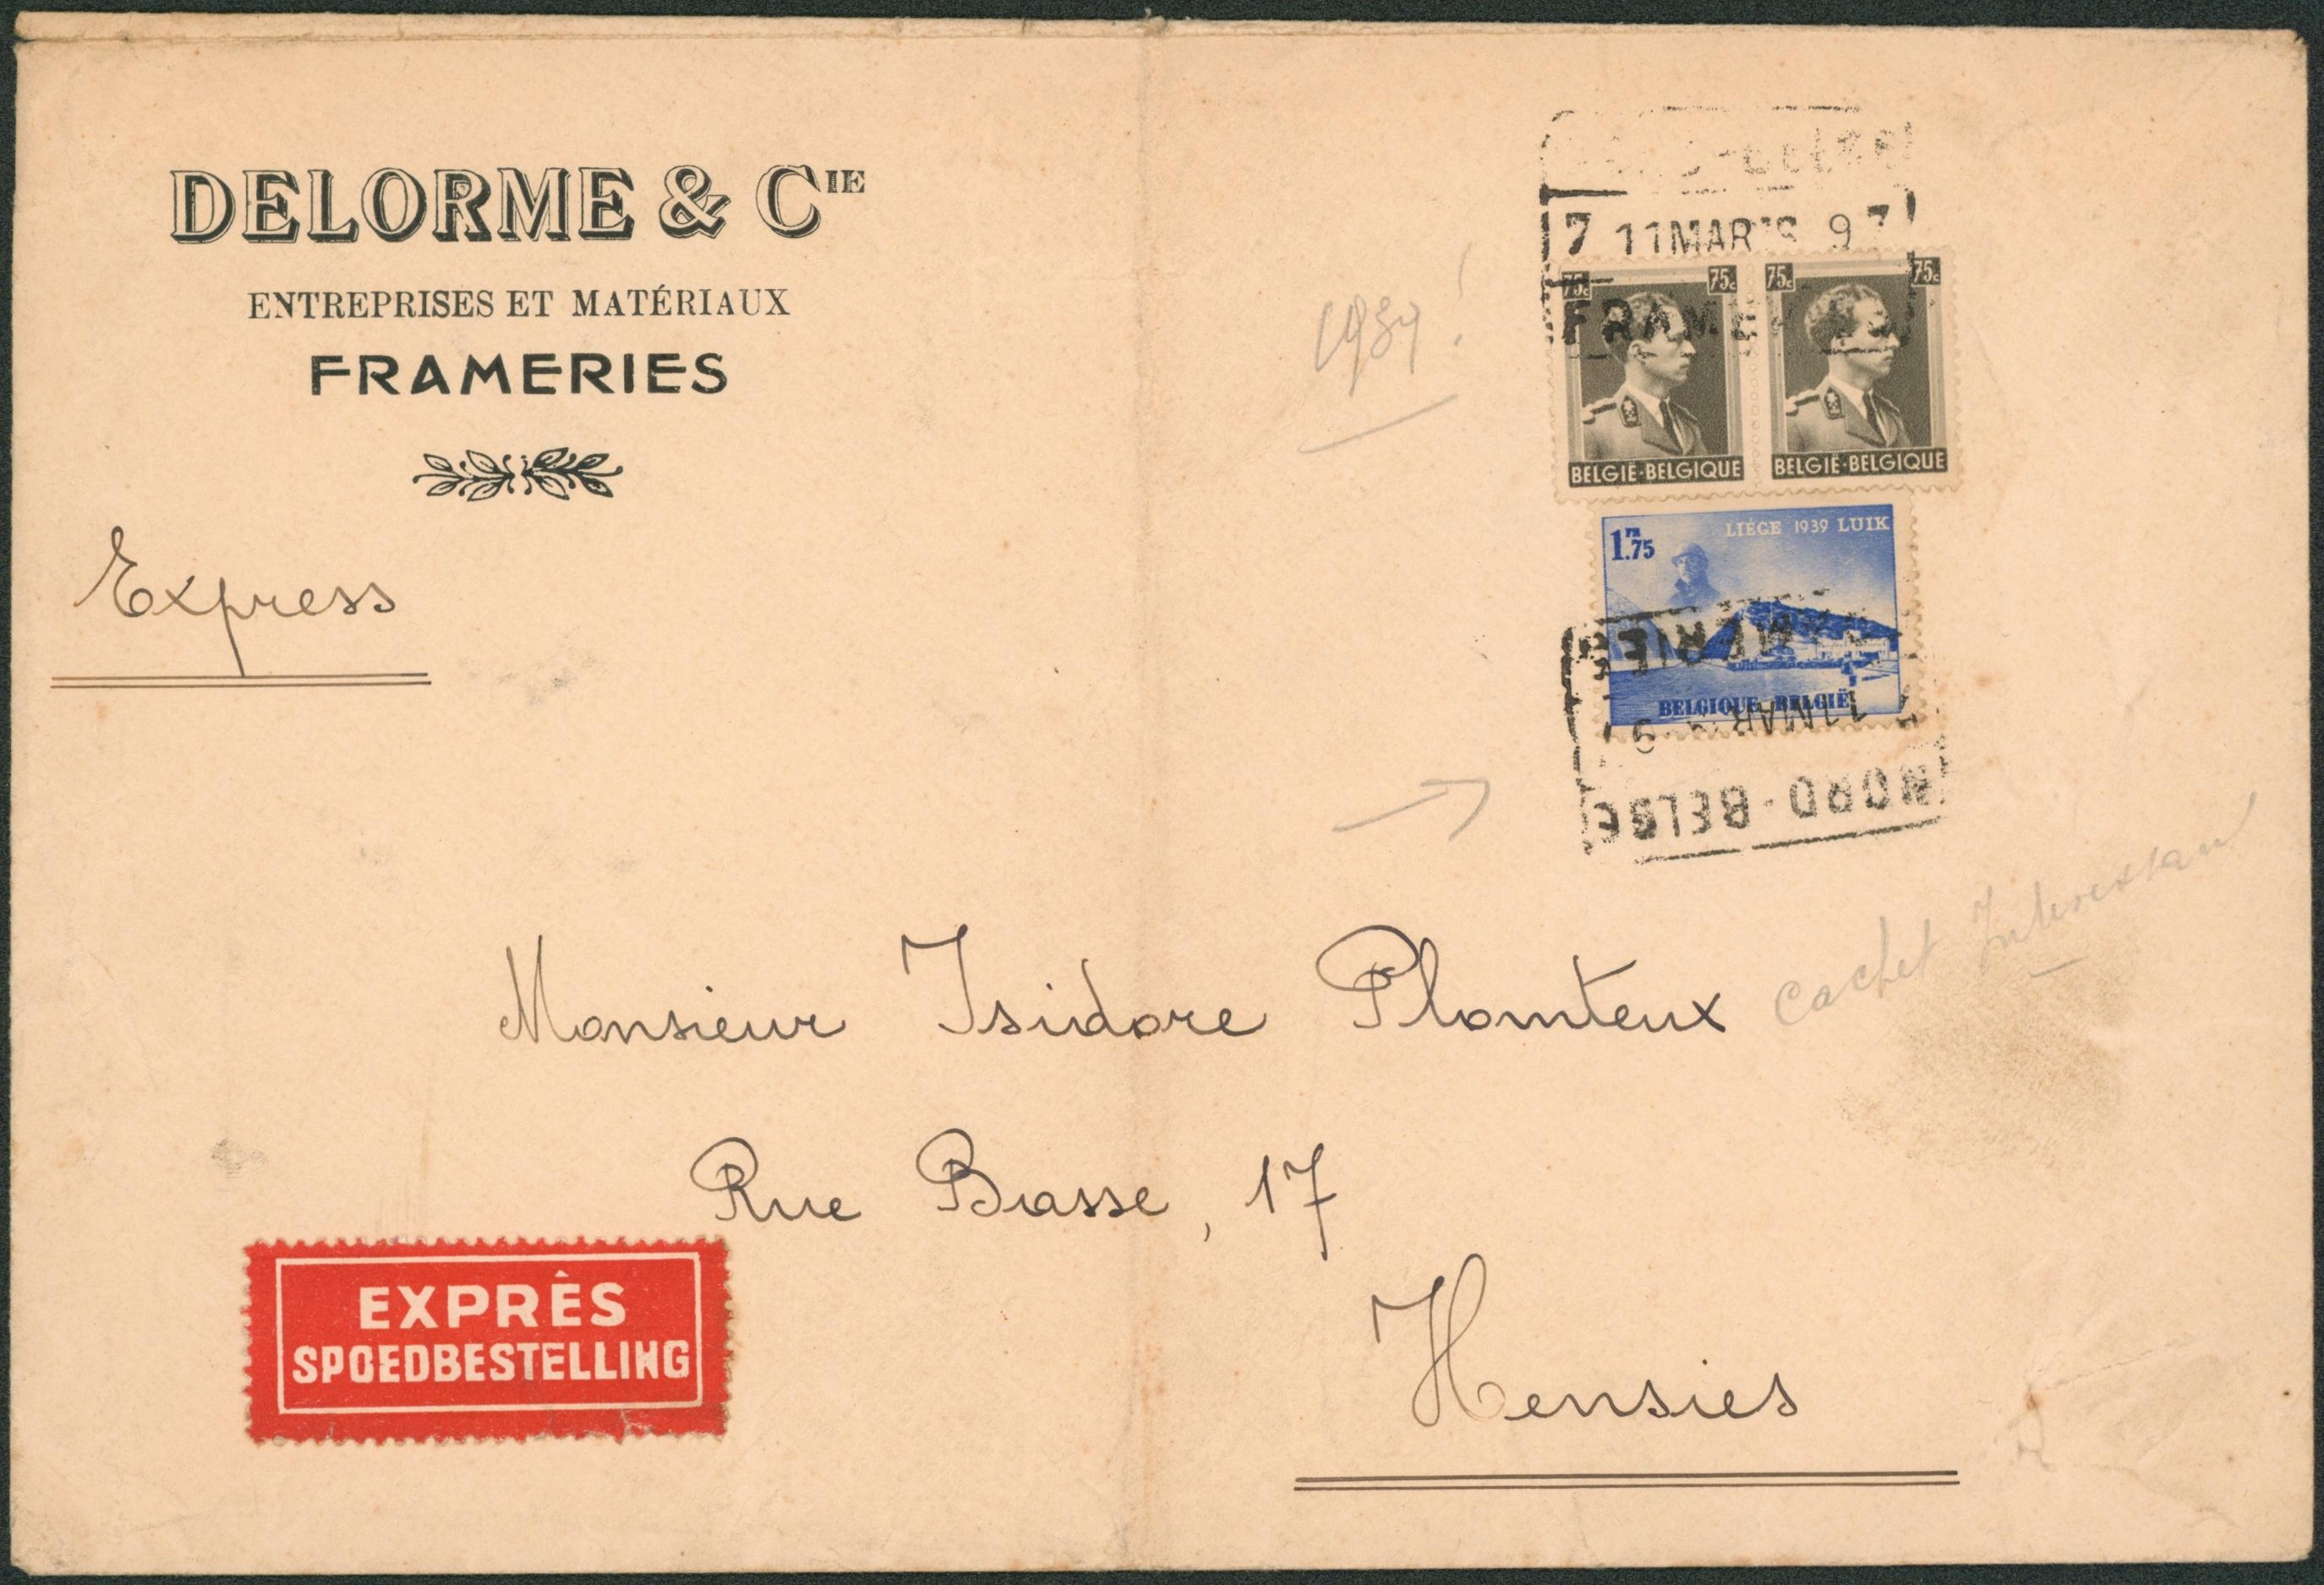 DELORME & CIE
ENTREPRISES ET MATÉRIAUX
FRAMERIES
Express
1939!
7 11MARS 9 7
FRAMERIES
75c 75c 75c 75c
BELGIË-BELGIQUE BELGIË-BELGIQUE
LIÉGE 1939 LUIK
1FR.75
BELGIQUE BELGIË
FRAMERIES
11MAR 9
NORD-BELGE
Cachet Interessant
Monsieur Isidore Plomteux
Rue Basse, 17
Hensies
EXPRÈS
SPOEDBESTELLING